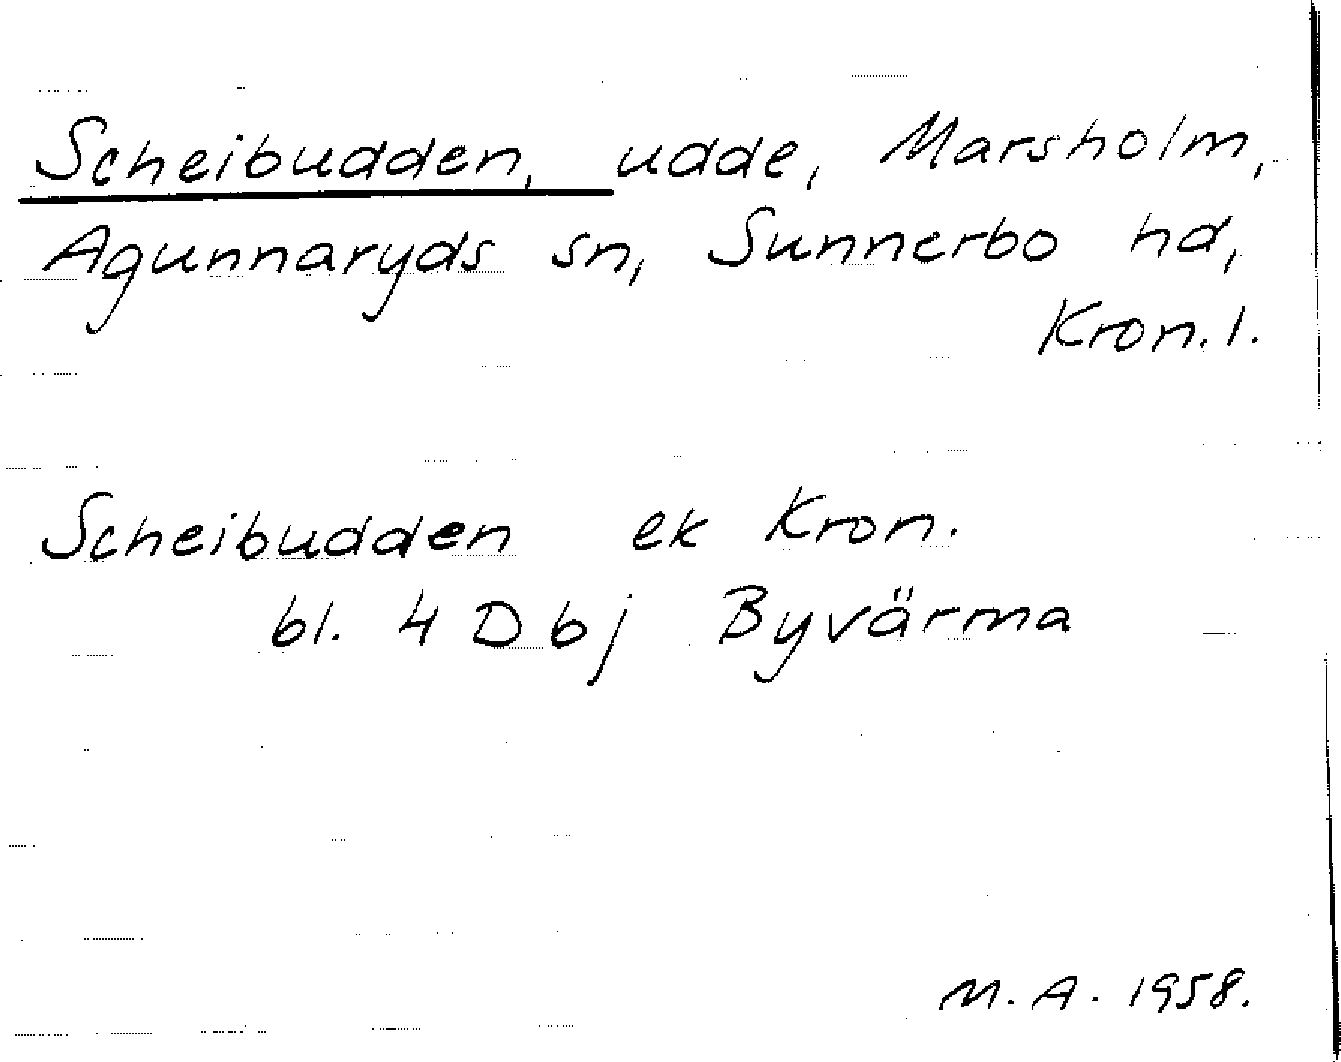 Scheibudden, udde, Marsholm,
Agunnaryds sn, Sunnerbo hd,
Kron. l.
Scheibudden ek Kron.
bl. 4 D bj Byvärma
M. A. 1958.